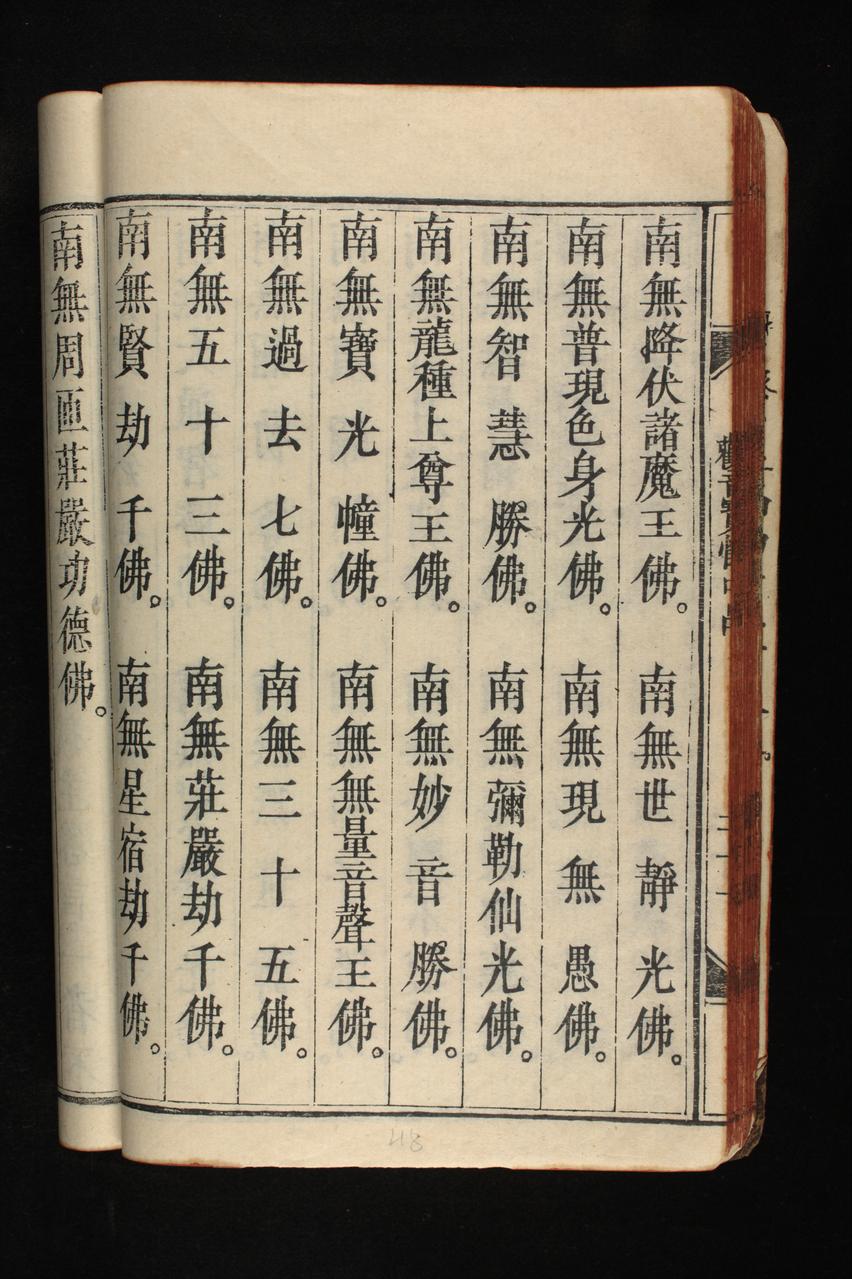 南無降伏諸魔王佛。南無世靜光佛。
南無普現色身光佛。南無現無愚佛。
南無智慧勝佛。南無彌勒仙光佛。
南無龍種上尊王佛。南無妙音勝佛。
南無寶光幢佛。南無無量音聲王佛。
南無過去七佛。南無三十五佛。
南無五十三佛。南無莊嚴劫千佛。
南無賢劫千佛。南無星宿劫千佛。
南無周匝莊嚴功德佛。